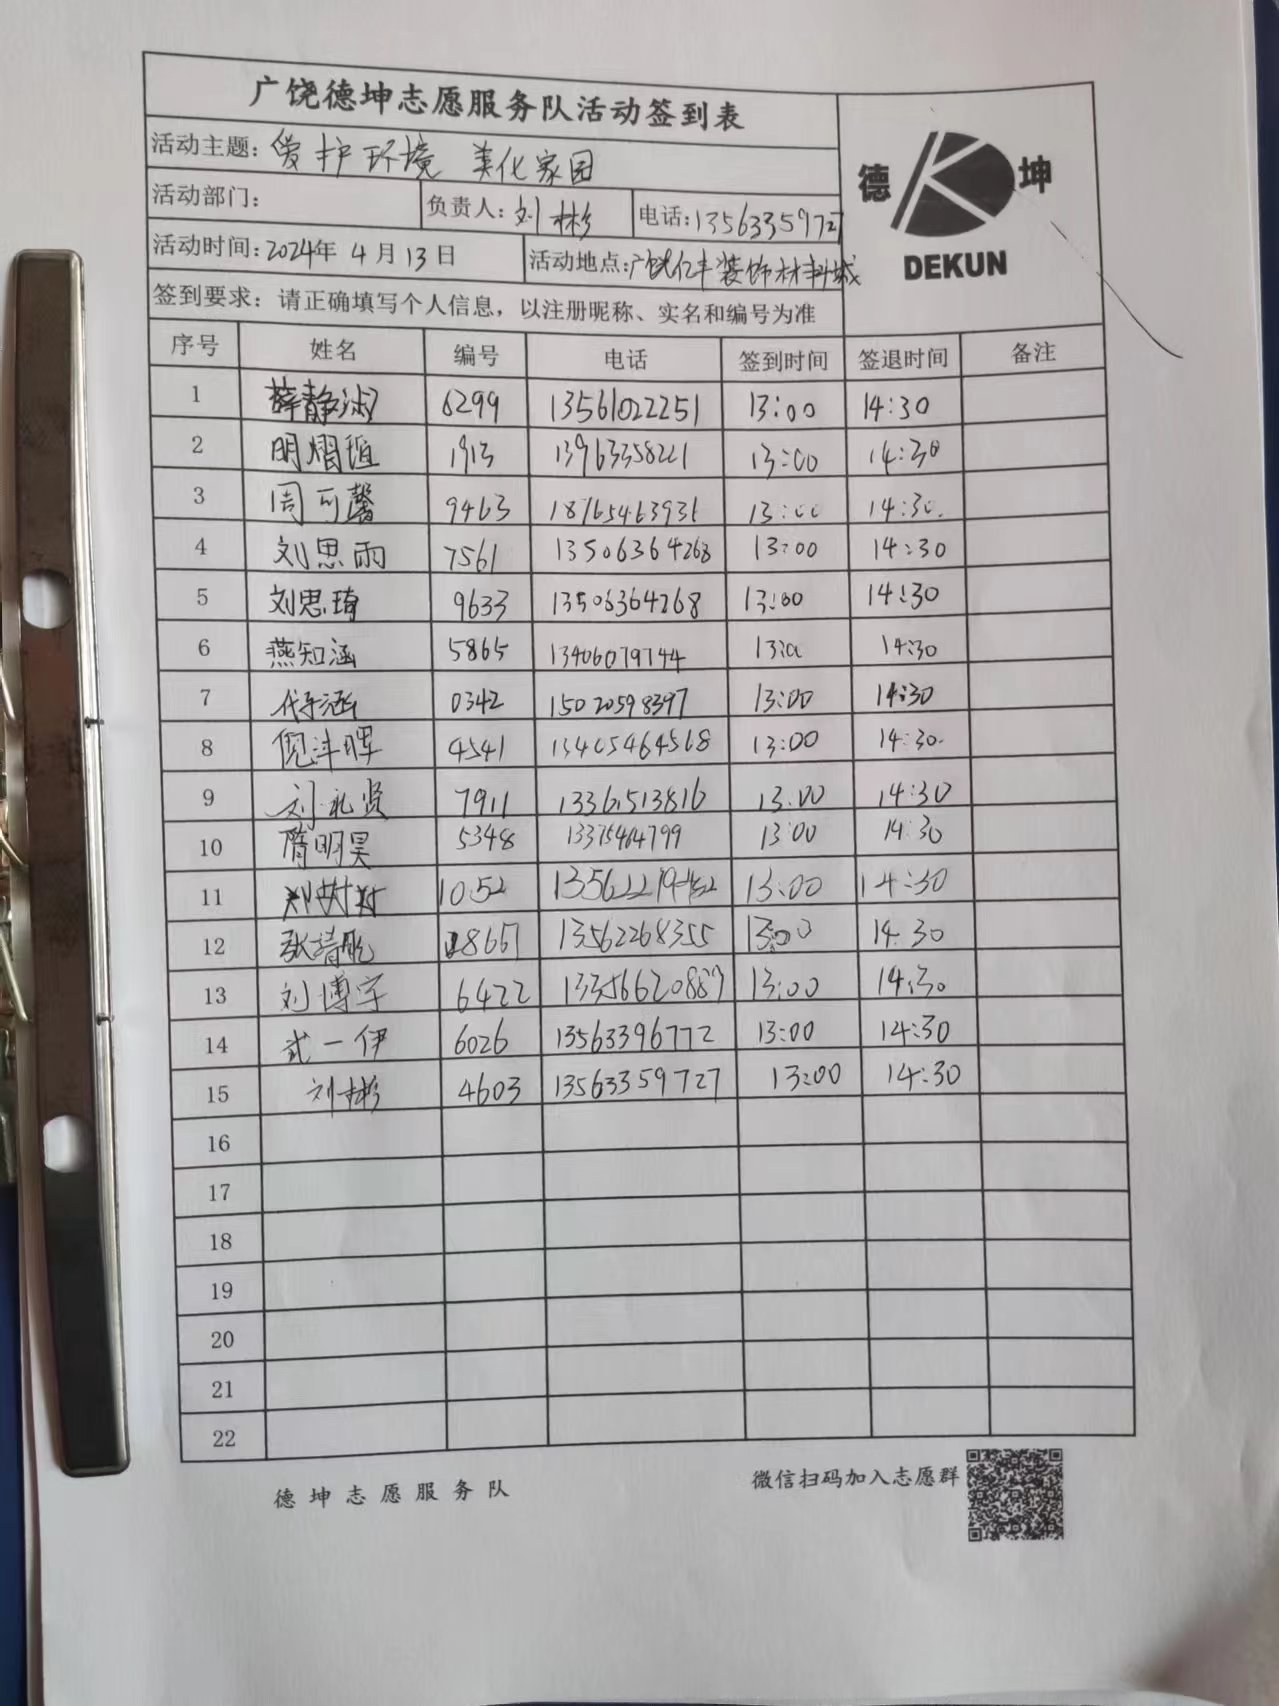 广饶德坤志愿服务队活动签到表
德 坤
DEKUN
活动主题：爱护环境 美化家园
活动部门： 负责人：刘彬 电话：13563359727
活动时间：2024年4月13日 活动地点：广饶亿丰装饰材料城
签到要求：请正确填写个人信息，以注册昵称、实名和编号为准
序号 姓名 编号 电话 签到时间 签退时间 备注
1 薛静淑 6299 13561022251 13:00 14:30
2 明熠 1913 13963358221 13:00 14:30
3 周可馨 9463 18765463931 13:00 14:30.
4 刘思雨 7561 13506364268 13:00 14:30
5 刘思琦 9633 13506364268 13:00 14:30
6 燕知涵 5865 13406079744 13:00 14:30
7 代子涵 0342 15020598397 13:00 14:30
8 倪沣晖 4541 13405464568 13:00 14:30.
9 刘礼贤 7911 13361513816 13:00 14:30
10 隋明昊 5348 13375464799 13:00 14:30
11 1052 13:00 14:30
12 张 13562268355 13:00 14:30
13 刘博宇 6422 13:00 14:30
14 武一伊 6026 13563396772 13:00 14:30
15 刘彬 4603 13563359727 13:00 14:30
16
17
18
19
20
21
22
德坤志愿服务队 微信扫码加入志愿群